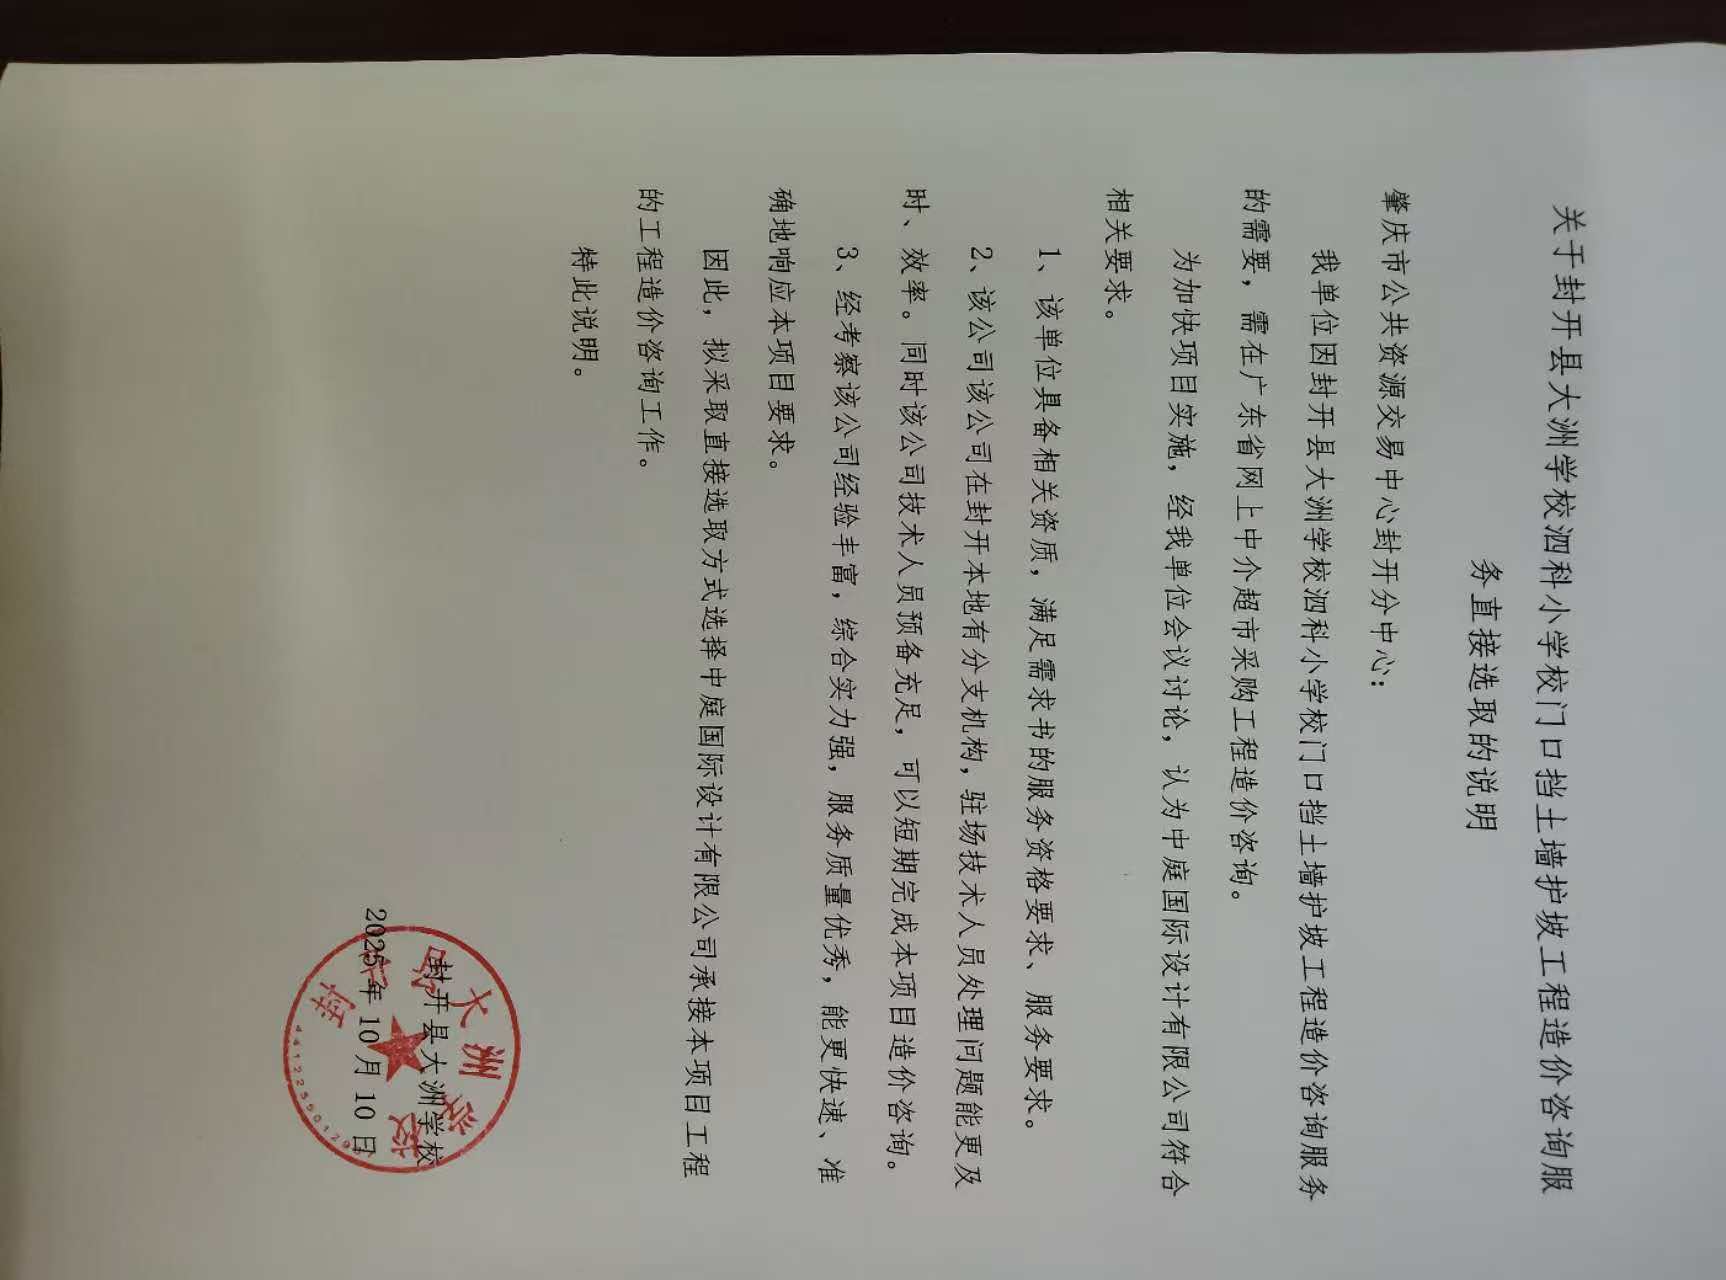 关于封开县大洲学校泗科小学校门口挡土墙护坡工程造价咨询服
务直接选取的说明
肇庆市公共资源交易中心封开分中心：
我单位因封开县大洲学校泗科小学校门口挡土墙护坡工程造价咨询服务
的需要，需在广东省网上中介超市采购工程造价咨询。
为加快项目实施，经我单位会议讨论，认为中庭国际设计有限公司符合
相关要求。
1、该单位具备相关资质，满足需求书的服务资格要求、服务要求。
2、该公司该公司在封开本地有分支机构，驻场技术人员处理问题能更及
时、效率。同时该公司技术人员预备充足，可以短期完成本项目造价咨询。
3、经考察该公司经验丰富，综合实力强，服务质量优秀，能更快速、准
确地响应本项目要求。
因此，拟采取直接选取方式选择中庭国际设计有限公司承接本项目工程
的工程造价咨询工作。
特此说明。
封开县大洲学校
2025年10月10日
封开县大洲学校